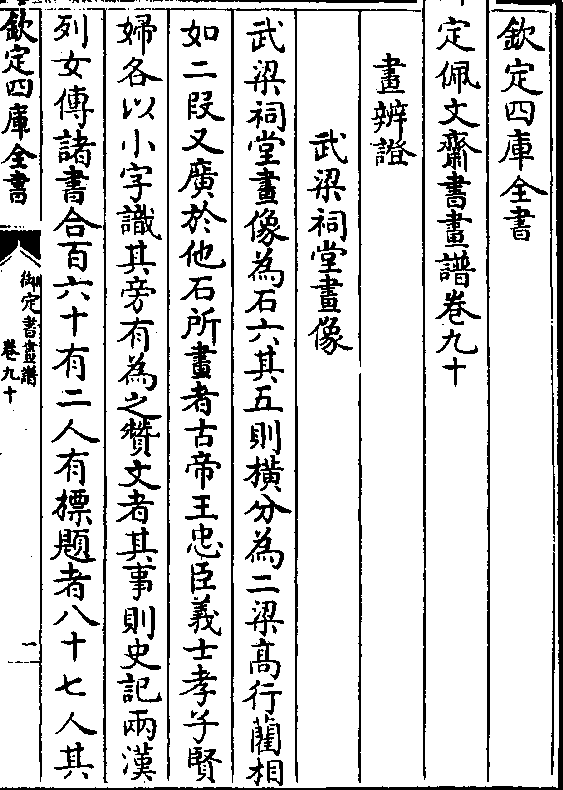 欽定四庫全書
定佩文齋書畫譜卷九十
畫辨證
武梁祠堂畫像
武梁祠堂畫像為石六其五則橫分為二梁高行藺相
如二段又廣於他石所畫者古帝王忠臣義士孝子賢
婦各以小字識其旁有為之贊文者其事則史記兩漢
列女傳諸書合百六十有二人有標題者八十七人其
欽定四庫全書
御定書畫譜
卷九十
一